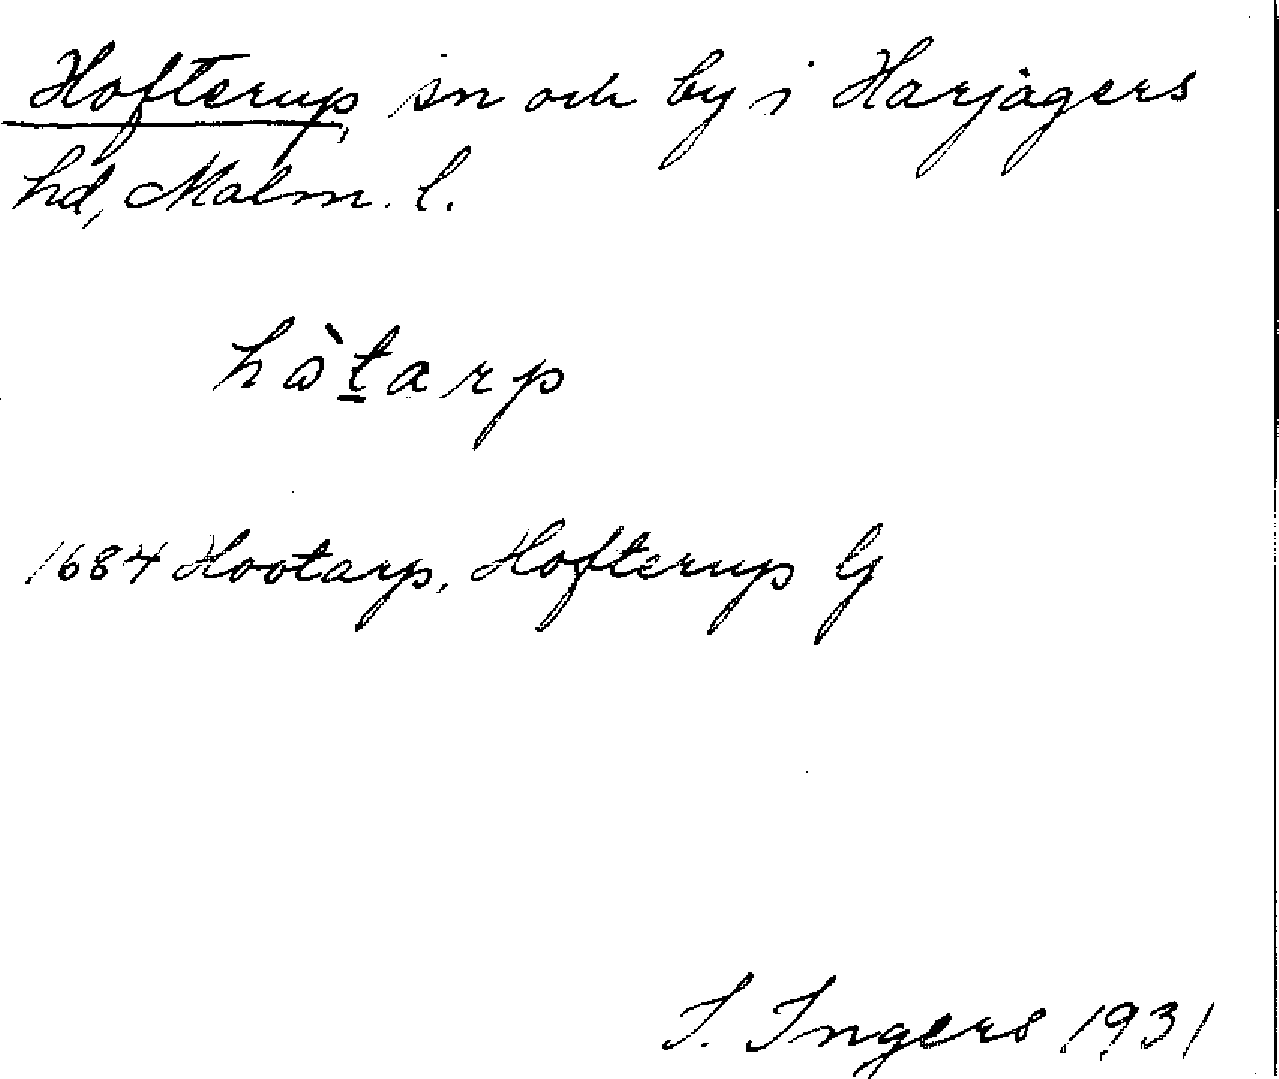 Hofterup, sn och by i Harjagers
hd, Malm. l.
hòt̲arp
1684 Hootarp, Hofterup G
I. Ingers 1931